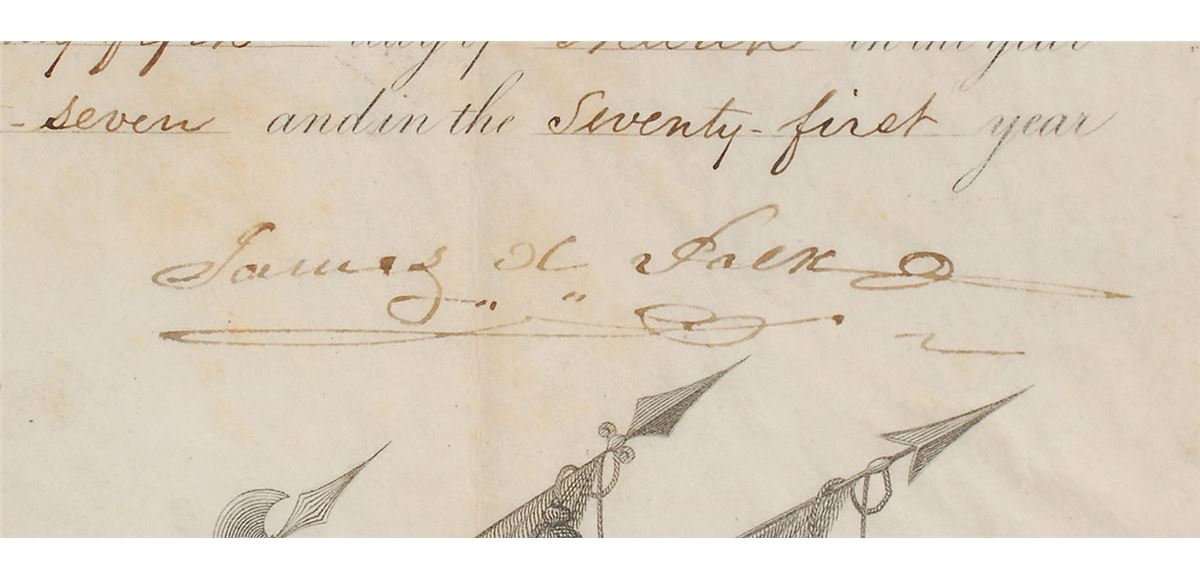 day of March in the year
-seven and in the Seventy-first year
James K Polk